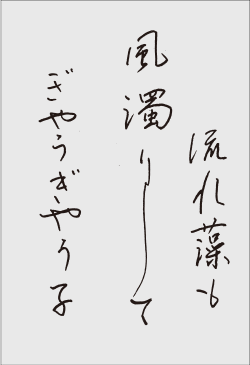 流れ藻も
風濁りして
ぎやうぎやう子